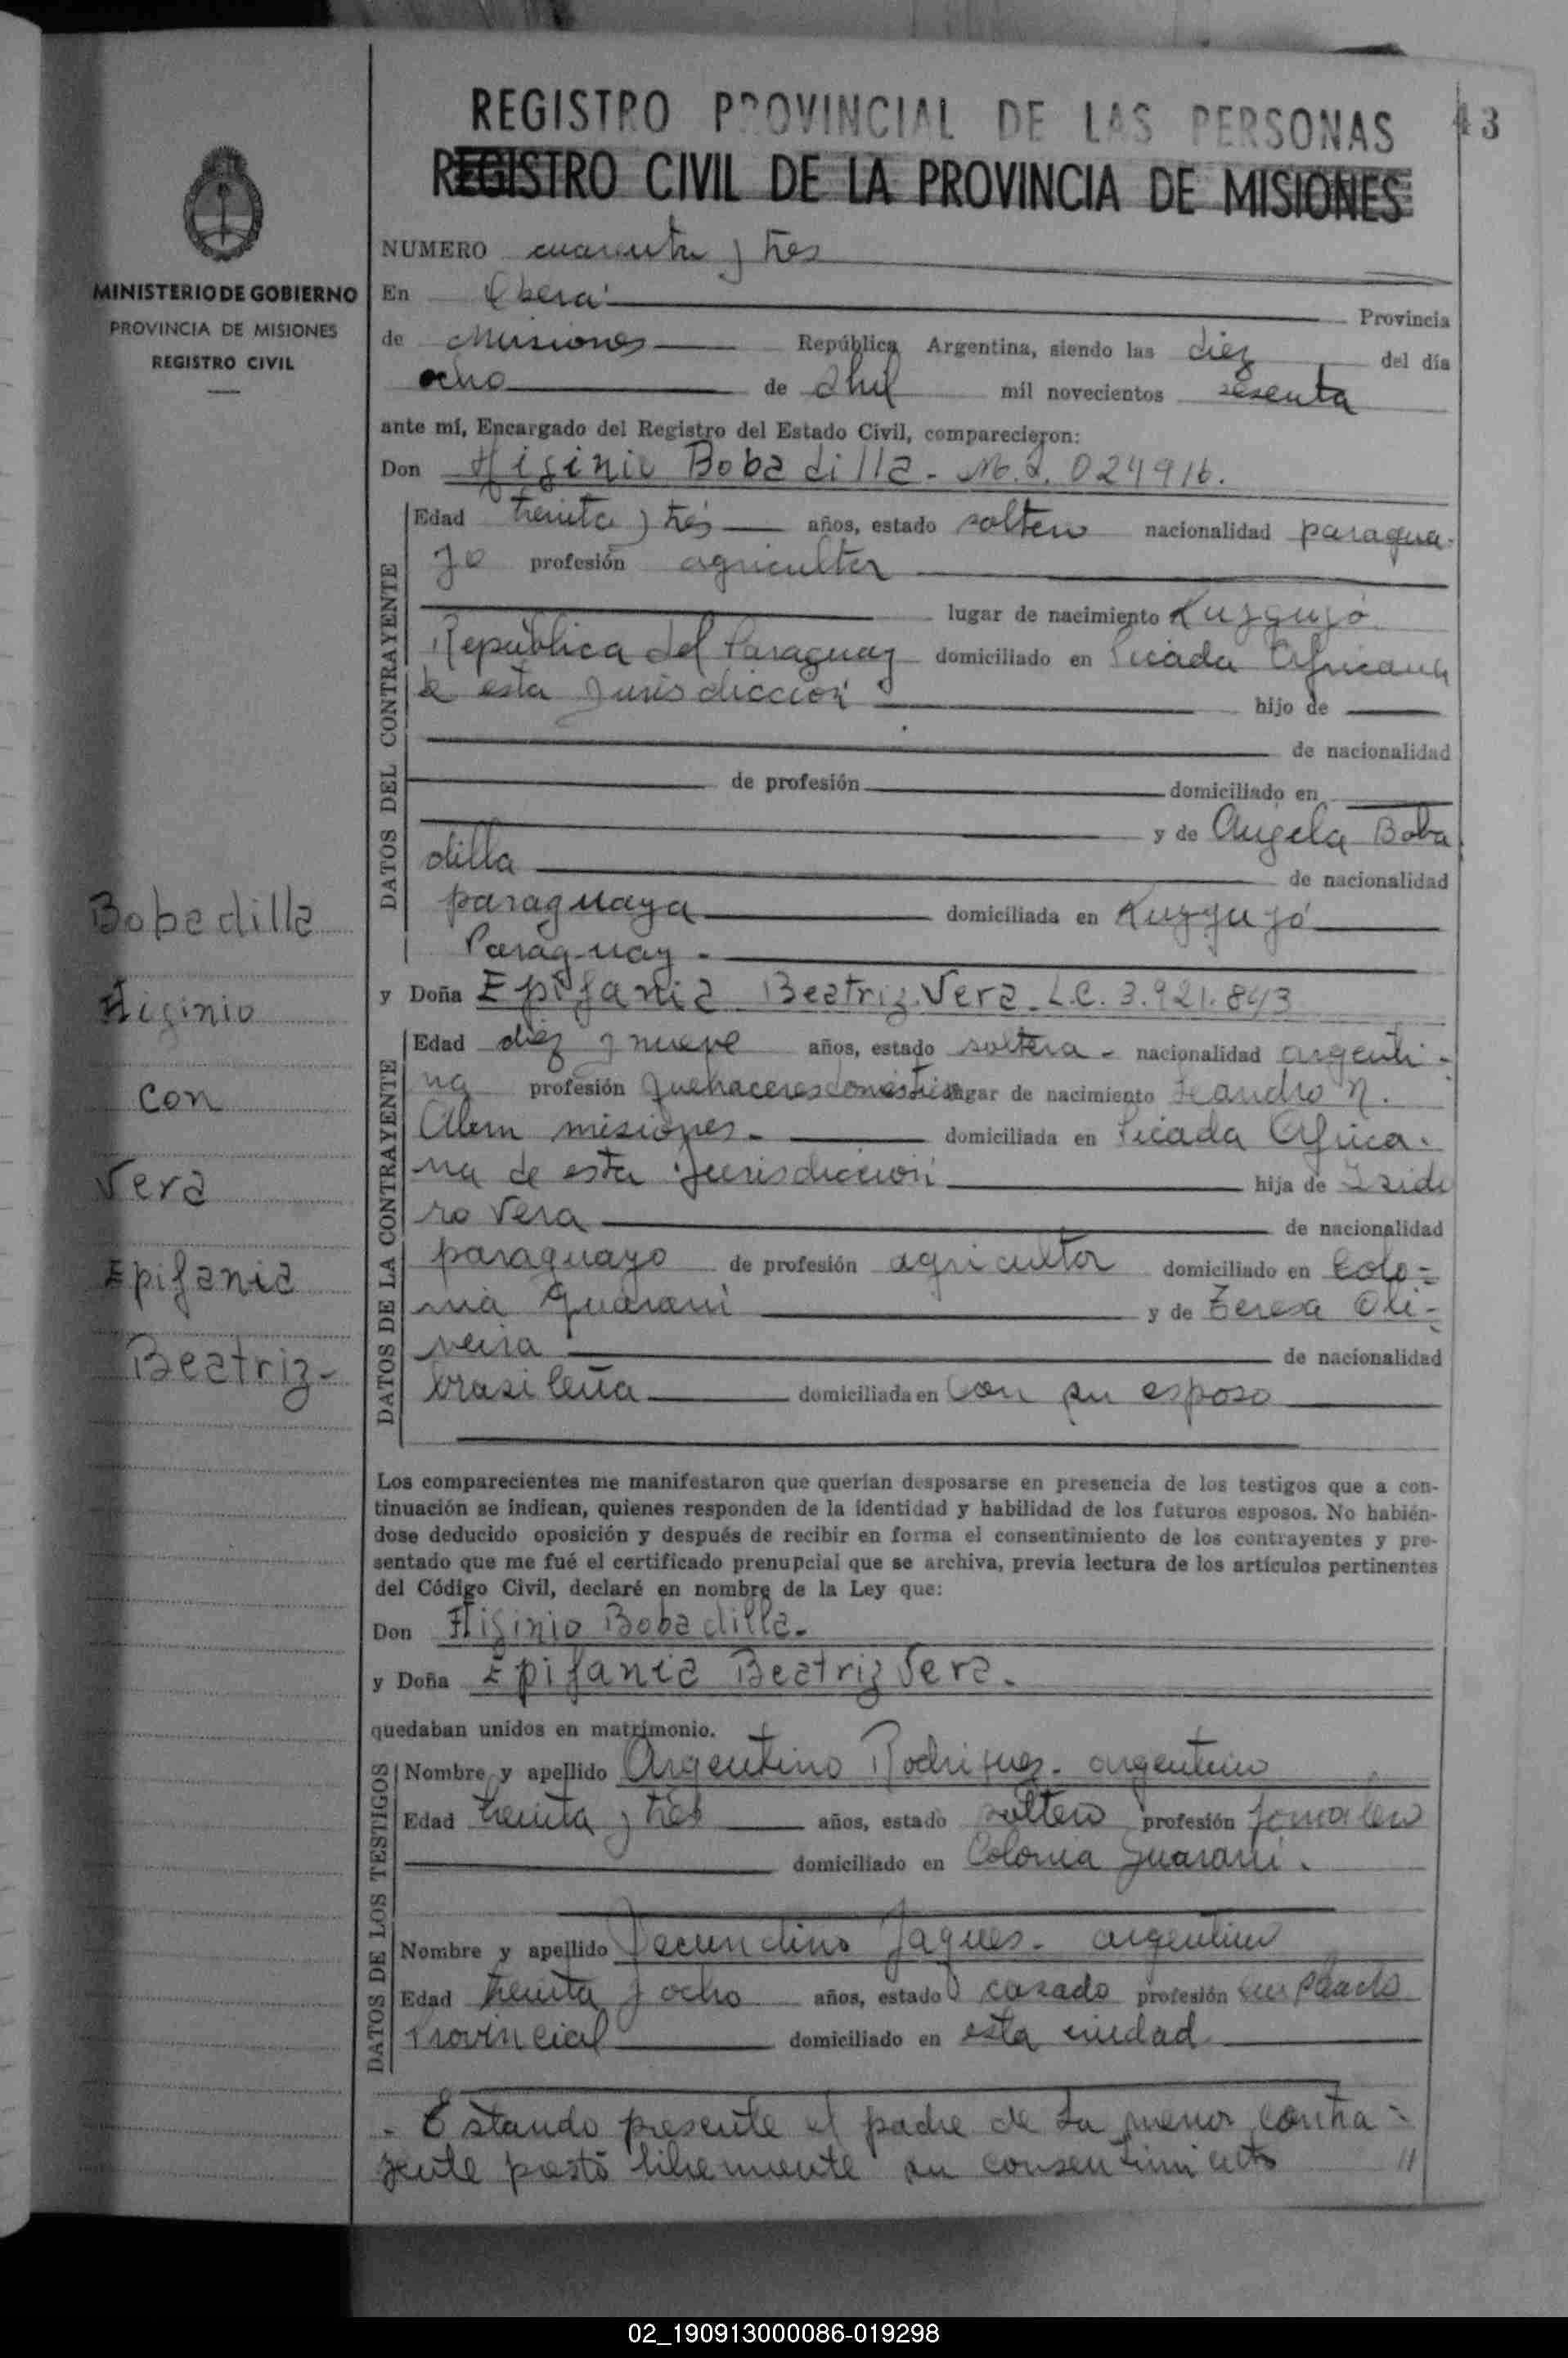 REGISTRO PROVINCIAL DE LAS PERSONAS
43
REGISTRO CIVIL DE LA PROVINCIA DE MISIONES
MINISTERIO DE GOBIERNO
PROVINCIA DE MISIONES
REGISTRO CIVIL
Bobadilla
Higinio
con
Vera
Epifania
Beatriz-
NUMERO cuarenta y tres
En Oberá Provincia
de Misiones República Argentina, siendo las diez del día
ocho de Abril mil novecientos sesenta
ante mí, Encargado del Registro del Estado Civil, comparecieron:
Don Higinio Bobadilla - M.I. 024916.
DATOS DEL CONTRAYENTE
Edad treinta y tres años, estado soltero nacionalidad paragua-
yo profesión agricultor
lugar de nacimiento
República del Paraguay domiciliado en Picada Africana
de esta Jurisdicción hijo de
de nacionalidad
de profesión domiciliado en
y de Angela Boba
dilla de nacionalidad
paraguaya domiciliada en
Paraguay -
y Doña Epifania Beatriz Vera - L.C. 3.921.843
DATOS DE LA CONTRAYENTE
Edad diez y nueve años, estado soltera - nacionalidad argenti-
na profesión quehaceres domésticos lugar de nacimiento Leandro N.
Alem misiones - domiciliada en Picada Africa-
na de esta Jurisdicción hija de Isidi
ro Vera de nacionalidad
paraguayo de profesión agricultor domiciliado en Colo-
nia Guarani y de Teresa Oli-
veira de nacionalidad
brasileña domiciliada en con su esposo
Los comparecientes me manifestaron que querían desposarse en presencia de los testigos que a con-
tinuación se indican, quienes responden de la identidad y habilidad de los futuros esposos. No habién-
dose deducido oposición y después de recibir en forma el consentimiento de los contrayentes y pre-
sentado que me fué el certificado prenupcial que se archiva, previa lectura de los artículos pertinentes
del Código Civil, declaré en nombre de la Ley que:
Don Higinio Bobadilla-
y Doña Epifania Beatriz Vera.
quedaban unidos en matrimonio.
DATOS DE LOS TESTIGOS
Nombre y apellido Argentino Rodriguez - argentino
Edad treinta y tres años, estado soltero profesión jornalero
domiciliado en Colonia Guarani.
Nombre y apellido Secundino Jaques - argentino
Edad treinta y ocho años, estado casado profesión empleado
Provincial domiciliado en esta ciudad
- Estando presente el padre de la menor contra-
yente prestó libremente su consentimiento //
02_190913000086-019298